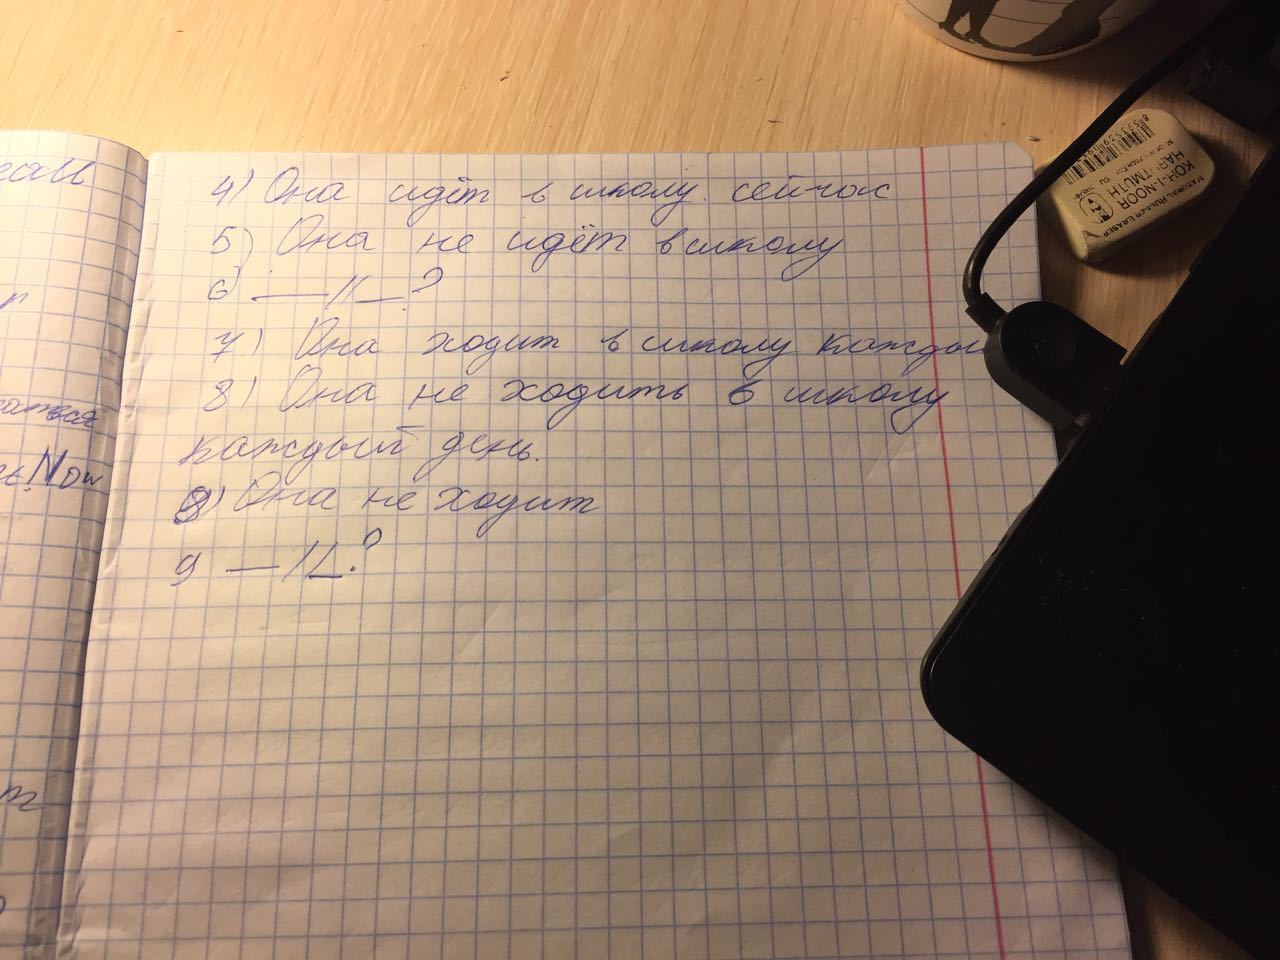 4) Она идёт в школу сейчас
5) Она не идёт в школу
6) —— // — ?
7) Она ходит в школу кажды
8) Она не ходить в школу
каждый день.
8) Она не ходит
9 — // — ?
Now
KOH-I-NOOR
HARDTMUTH
NATURAL RUBBER ERASER